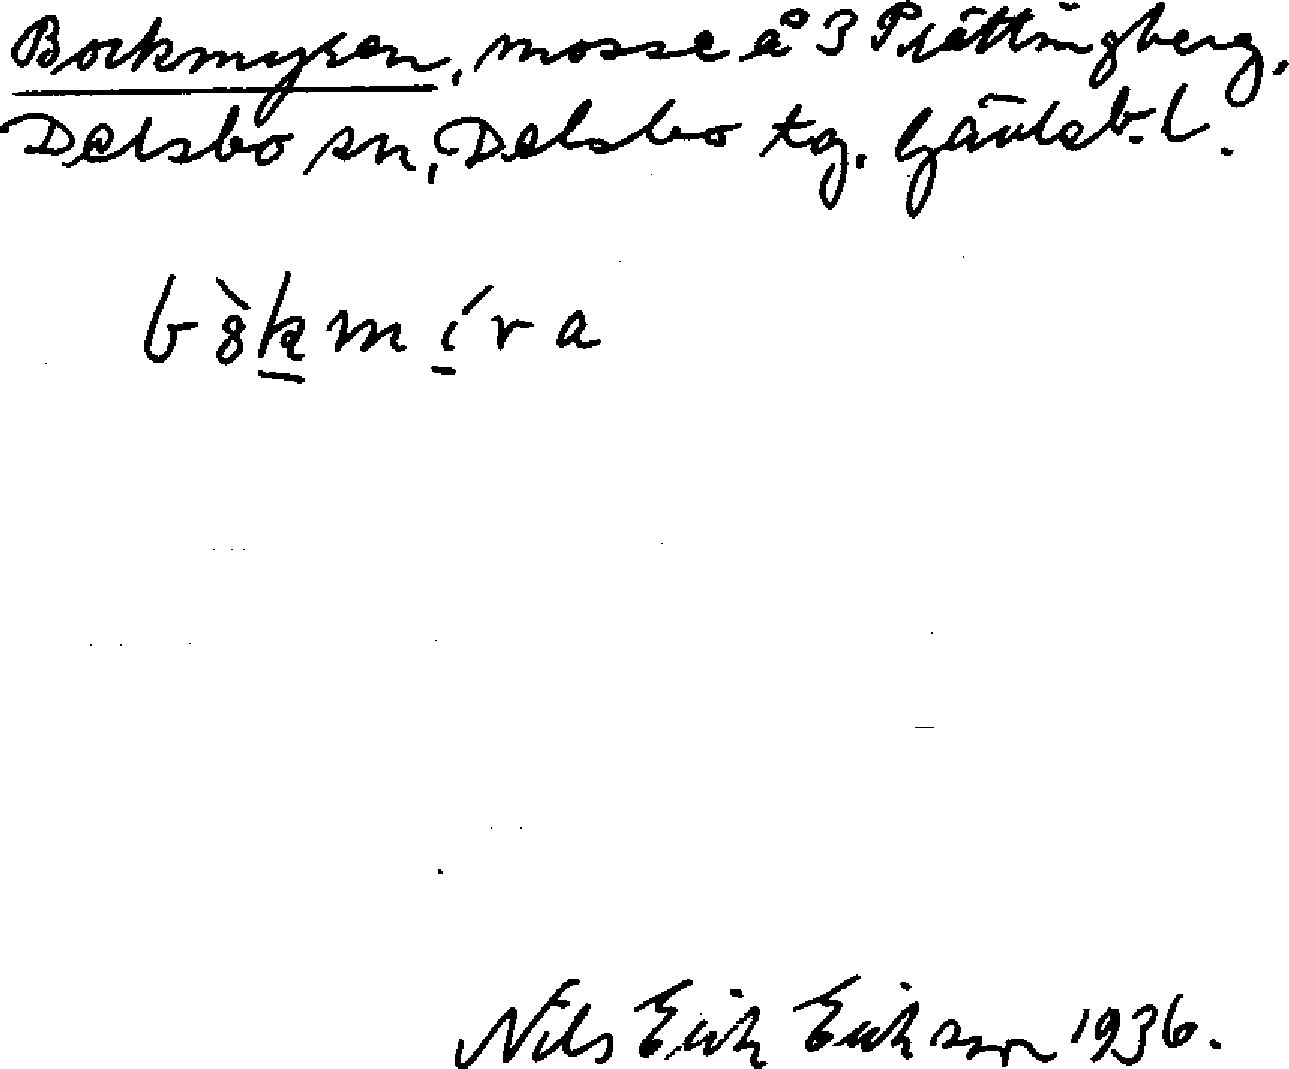 Bockmyran, mosse å 3 Prästtingberg.
Delsbo sn, Delsbo tg. Gävleb. l.
bòkmíra
Nils Erik Erikson 1936.